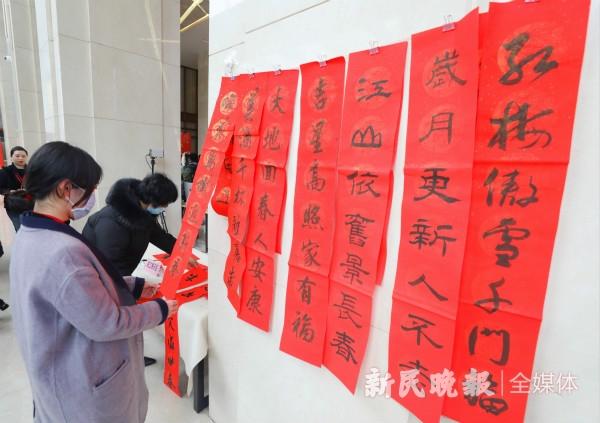 紅梅傲雪千門福
歲月更新人不老
江山依舊景長春
吉星高照家有福
大地回春人安康
新民晚報 全媒体